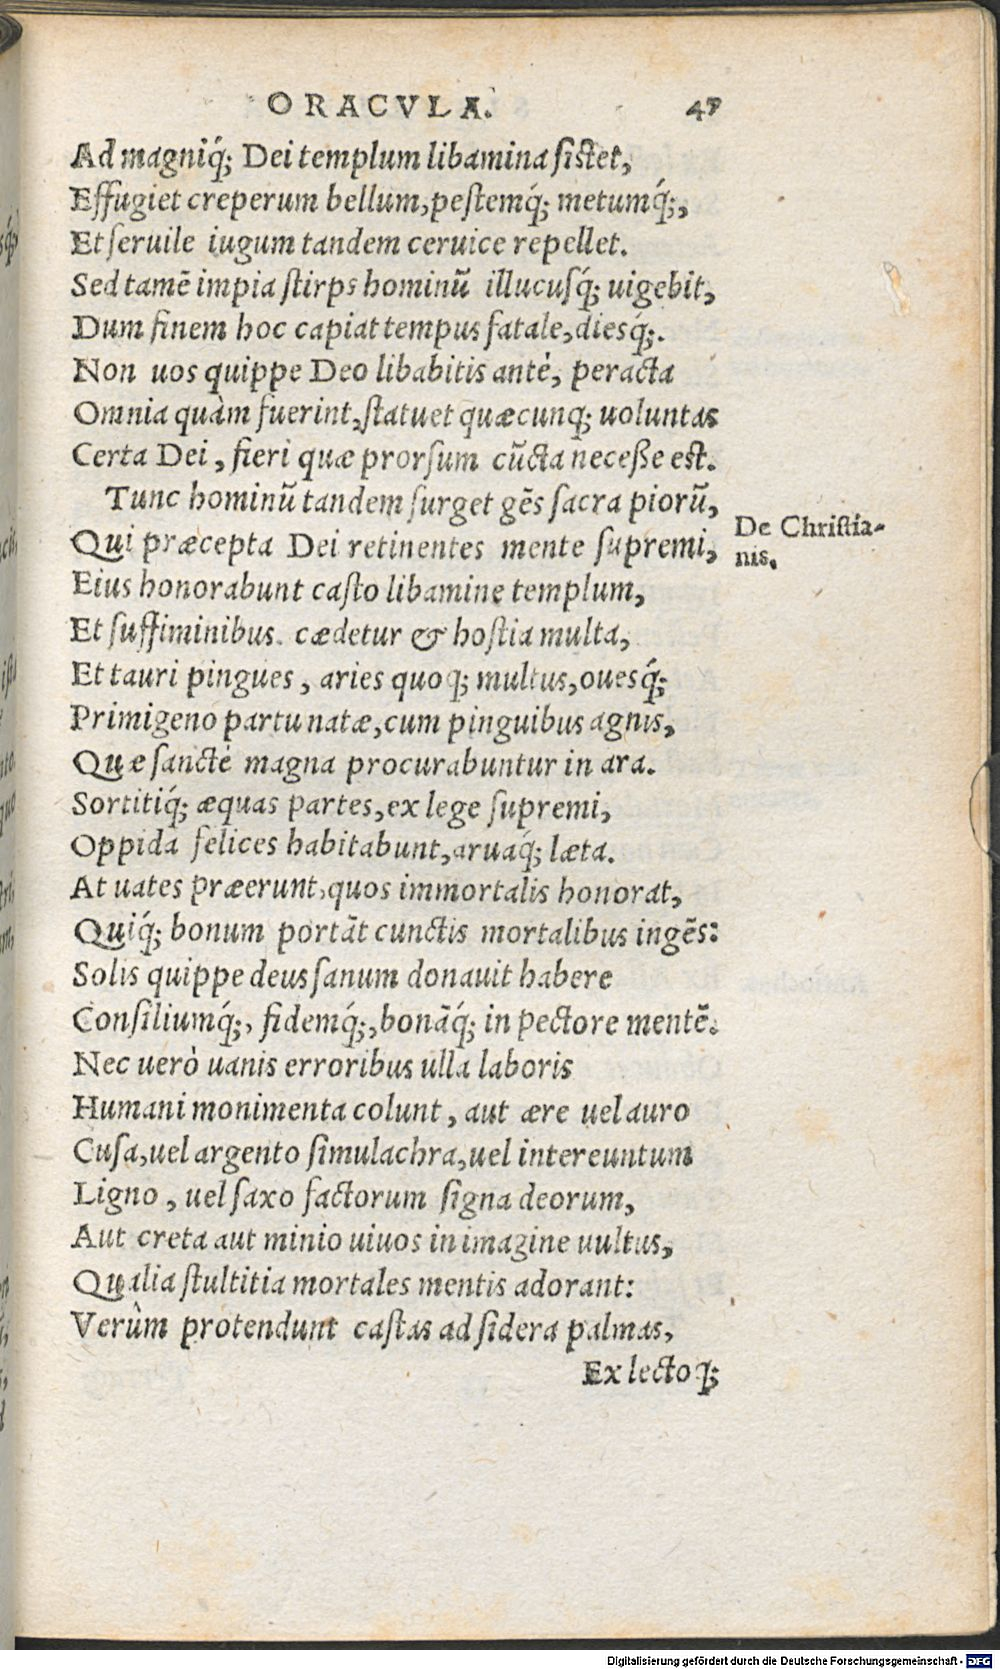 ORACVLA. 47
Ad magniq́; Dei templum libamina ſiſtet,
Effugiet creperum bellum, peſtemq́; metumq́;,
Et ſeruile iugum tandem ceruice repellet.
Sed tamē impia ſtirps hominū illucuſq́; uigebit,
Dum finem hoc capiat tempus fatale, diesq́;.
Non uos quippe Deo libabitis antè, peracta
Omnia quàm fuerint, ſtatuet quæcunq; uoluntas
Certa Dei, fieri quæ prorſum cūcta neceſſe eſt.
Tunc hominū tandem ſurget gēs ſacra piorū,
De Chriſtia-
Qui præcepta Dei retinentes mente ſupremi,
nis.
Eius honorabunt caſto libamine templum,
Et ſuffiminibus. cædetur & hoſtia multa,
Et tauri pingues, aries quoq; multus, ouesq́;
Primigeno partu natæ, cum pinguibus agnis,
Quæ ſanctè magna procurabuntur in ara.
Sortitiq́; æquas partes, ex lege ſupremi,
Oppida felices habitabunt, aruaq́; læta.
At uates præerunt, quos immortalis honorat,
Quiq́; bonum portāt cunctis mortalibus ingēs:
Solis quippe deus ſanum donauit habere
Conſiliumq́;, fidemq́;, bonāq́; in pectore mentē.
Nec uerò uanis erroribus ulla laboris
Humani monimenta colunt, aut ære uel auro
Cuſa, uel argento ſimulachra, uel intereuntum
Ligno, uel ſaxo factorum ſigna deorum,
Aut creta aut minio uiuos in imagine uultus,
Qualia ſtultitia mortales mentis adorant:
Verùm protendunt caſtas ad ſidera palmas,
Ex lectoq́;
Digitalisierung gefördert durch die Deutsche Forschungsgemeinschaft - DFG